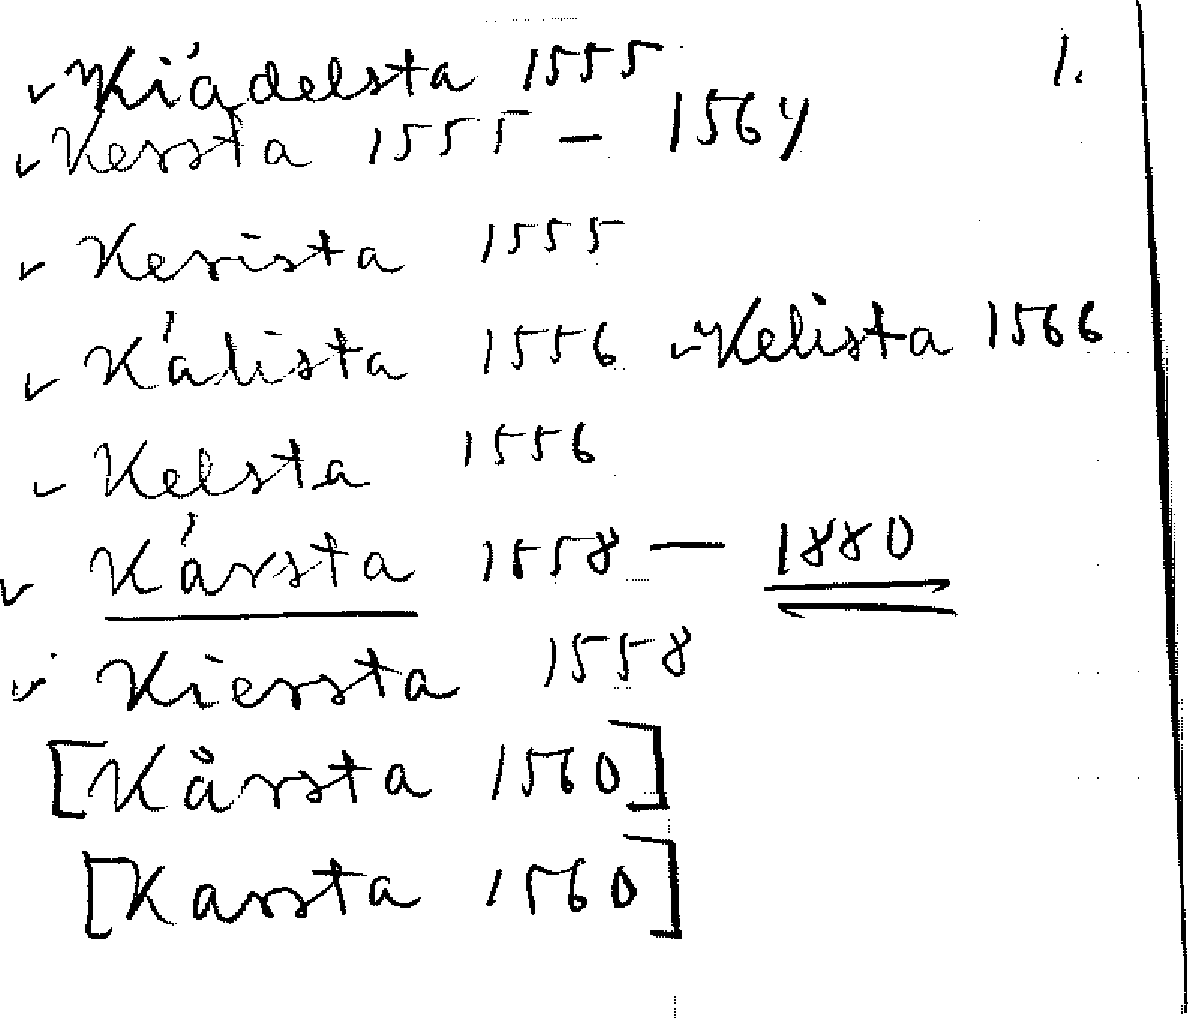 ✓ Kiädelsta 1555 1.
✓ Kersta 1555 – 1564
✓ Kerista 1555
✓ Kálista 1556 ✓ Kelista 1566
✓ Kelsta 1556
✓ Kársta 1558 — 1880
✓ Kiersta 1558
[Kårsta 1560]
[Karsta 1560]